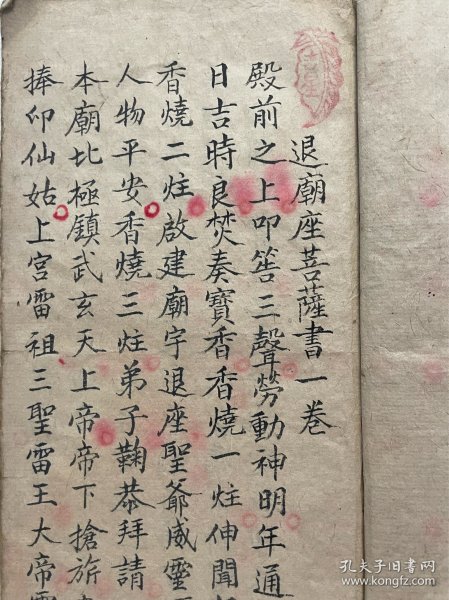 退廟座菩薩書一卷
殿前之上叩筶三聲勞動神明年通
日吉時良焚奏寶香香燒一炷伸聞
香燒二炷啟建廟宇退座聖爺威靈
人物平安香燒三炷弟子鞠恭拜請
本廟比極鎮武玄天上帝帝下搶旂
捧印仙姑上宮雷祖三聖雷王大帝
孔夫子旧书网
www.kongfz.com